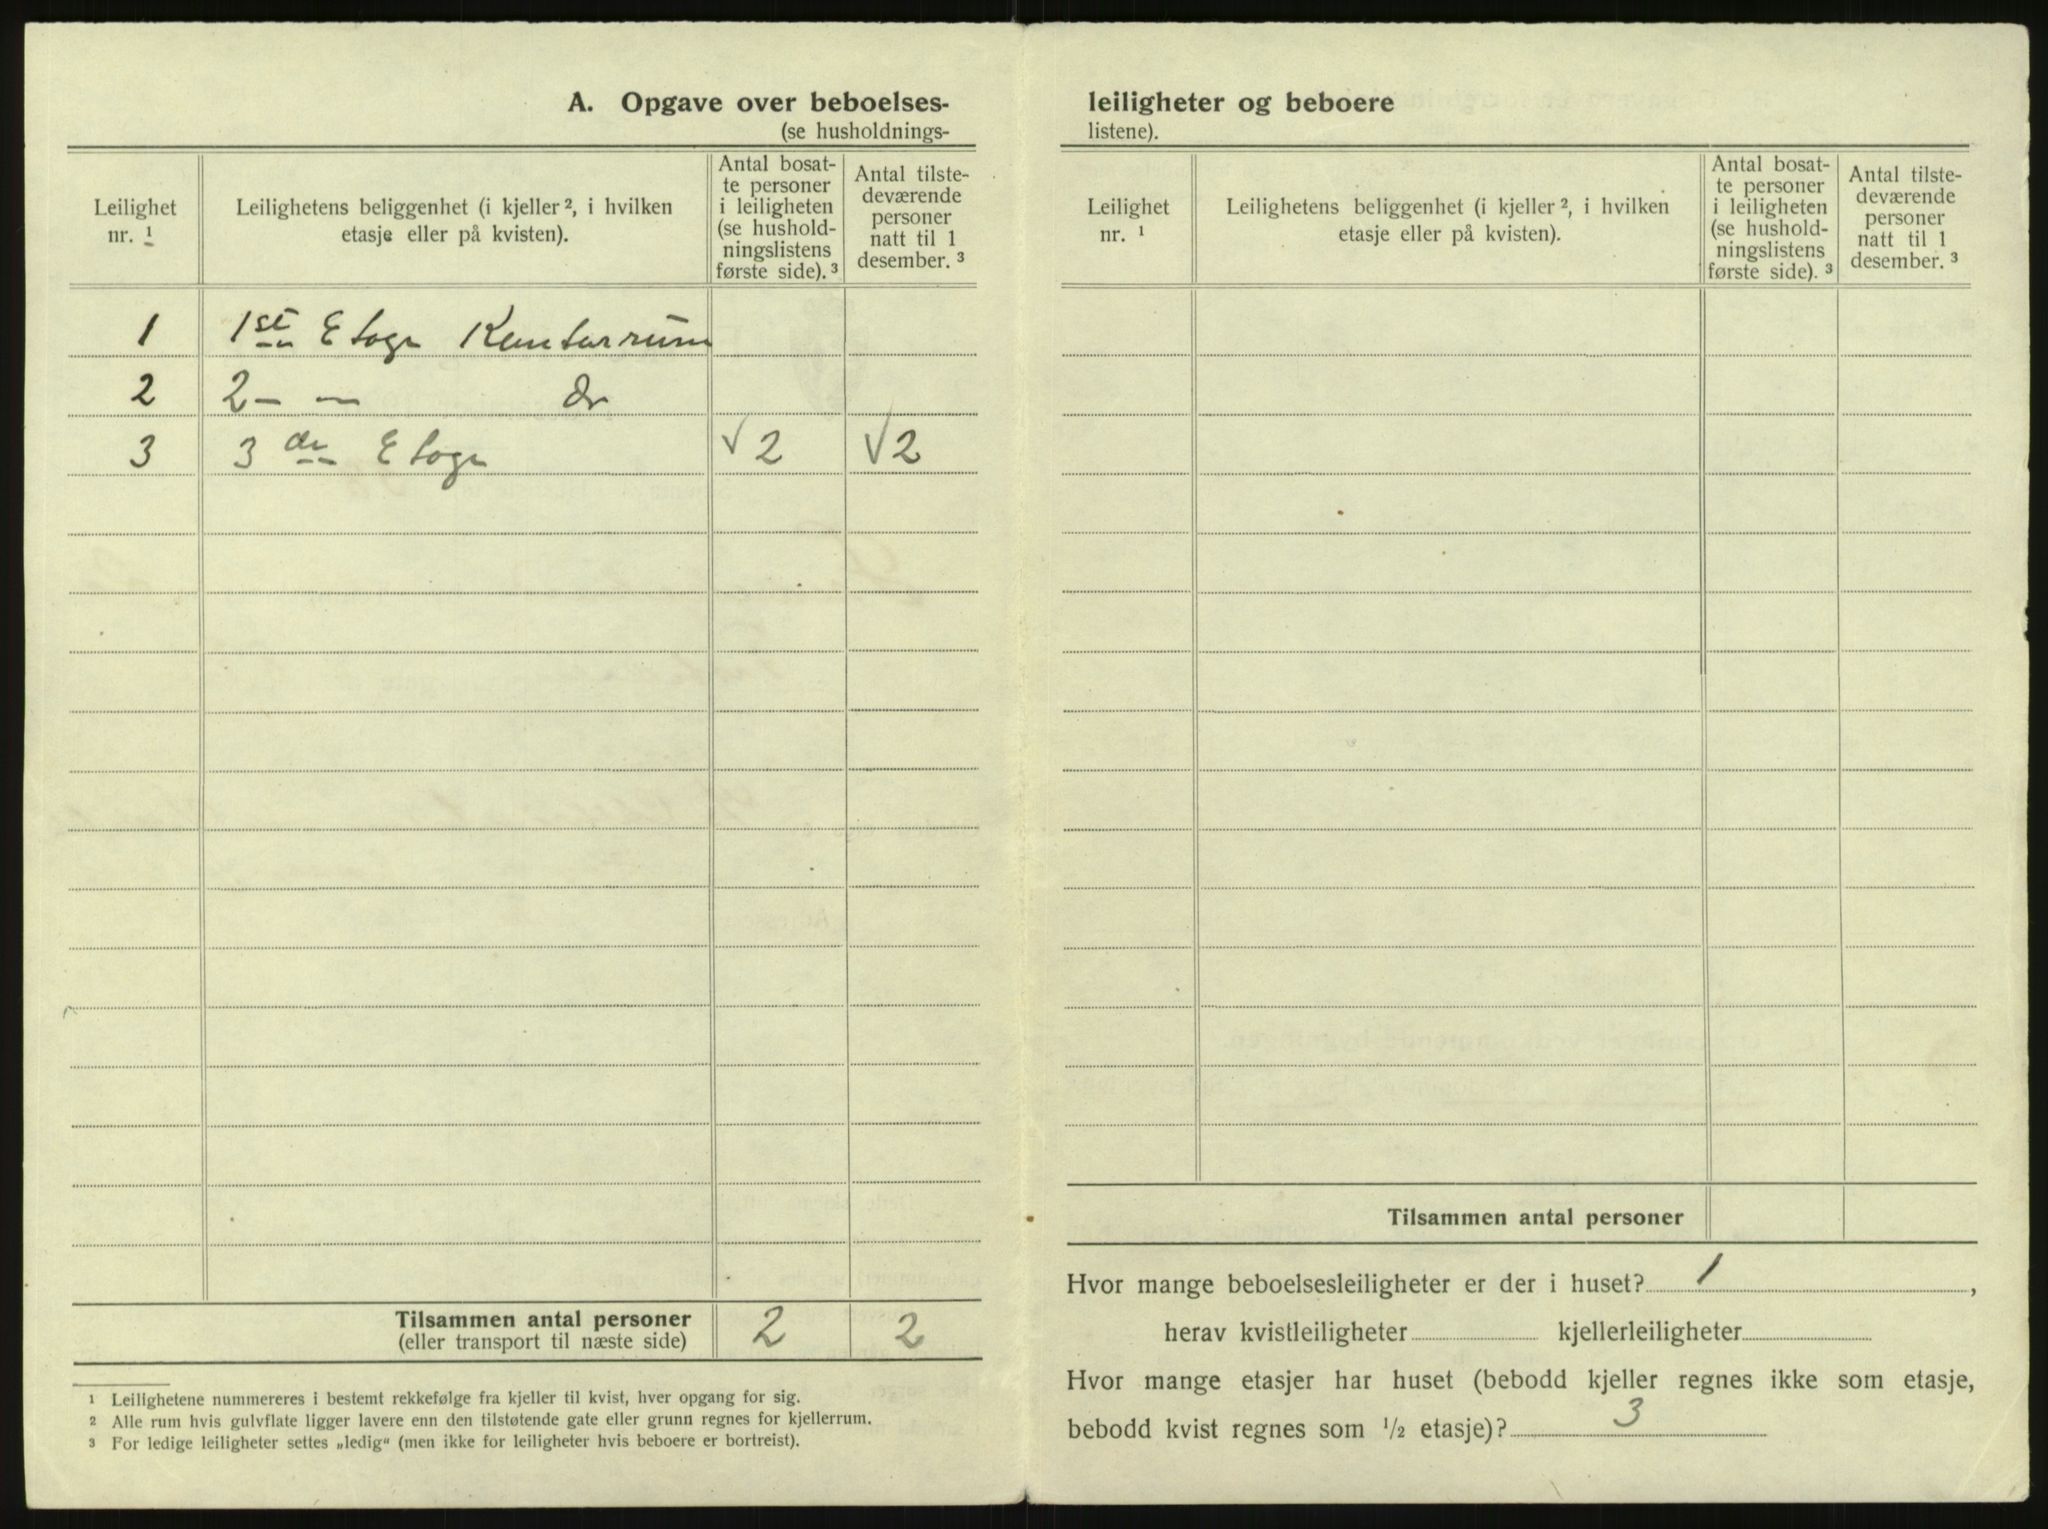 A. Opgave over beboelses-
(se husholdnings-
Leilighet
nr. 1
Leilighetens beliggenhet (i kjeller ², i hvilken
etasje eller på kvisten).
Antal bosat-
te personer
i leiligheten
(se hushold-
ningslistens
første side). ³
Antal tilste-
deværende
personer
natt til 1
desember. ³
1 1ste Etage Kontorrum
2 2- — do
3 3die Etage √2 √2
Tilsammen antal personer 2 2
(eller transport til næste side)
¹ Leilighetene nummereres i bestemt rekkefølge fra kjeller til kvist, hver opgang for sig.
² Alle rum hvis gulvflate ligger lavere enn den tilstøtende gate eller grunn regnes for kjellerrum.
³ For ledige leiligheter settes „ledig“ (men ikke for leiligheter hvis beboere er bortreist).
leiligheter og beboere
listene).
Leilighet
nr. ¹
Leilighetens beliggenhet (i kjeller ², i hvilken
etasje eller på kvisten).
Antal bosat-
te personer
i leiligheten
(se hushold-
ningslistens
første side). ³
Antal tilste-
deværende
personer
natt til 1
desember. ³
Tilsammen antal personer
Hvor mange beboelsesleiligheter er der i huset? 1 ,
herav kvistleiligheter kjellerleiligheter
Hvor mange etasjer har huset (bebodd kjeller regnes ikke som etasje,
bebodd kvist regnes som ½ etasje)? 3